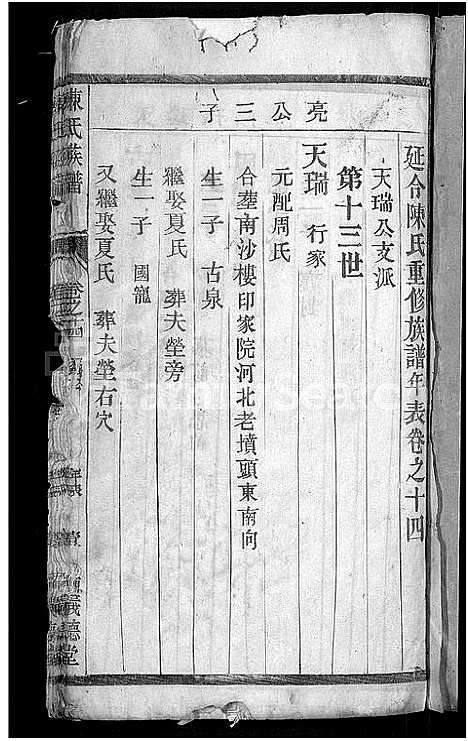 延令陳氏重修族譜年表卷之十四
亮公三子
天瑞公支派
第十三世
天瑞 行家
元配周氏
合塟南沙樓印家院河北老墳頭東南向
生一子 古泉
繼娶夏氏 葬夫塋旁
生一子 國寵
又繼娶夏氏 葬夫塋右穴
陳氏族譜 卷之十四 義德堂